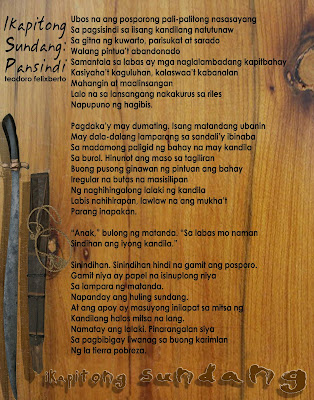 IKapitong
Sundang:
Pansindi
leodoro felixberto
Ubos na ang posporong pali-palitong nasasayang
Sa pagsisindi sa iisang kandilang natutunaw
Sa gitna ng kuwarto, parisukat at sarado
Walang pintua't abandonado
Samantala sa labas ay mga naglalambadang kapitbahay
Kasiyaha't kaguluhan, kalaswaa't kabanalan
Mahangin at maalinsangan
Lalo na sa lansangang nakakurus sa riles
Napupuno ng hagibis.
Pagdaka'y may dumating. Isang malandang ubanin
May dala-dalang lamparang sa sandali'y ihinaba
Sa madamong paligid ng bahay na may kandila
Sa burol. Hinunot ang maso sa tagiliran
Buong pusong ginawan ng pintuan ang bahay
Iregular na butas na masisilipan
Ng naghihingalong lalaki ng kandila
Labis nahihirapan, lawlaw na ang mukha't
Parang inapakan.
"Anak," bulong ng matanda. "Sa labas mo naman
Sindihan ang iyong kandila."
Sinindihan. Sinindihan hindi na gamit ang posporo.
Gamit niya ay papel na isinuplong niya
Sa lampara ng matanda.
Napanday ang huling sundang.
At ang apoy ay masuyong inilapat sa mitsa ng
Kandilang halos mitsa na lang.
Namatay ang lalaki. Pinarangalan siya
Sa pagbibigay liwanag sa buong karimlan
Ng la tierra pobreza.
ikapitong sundang